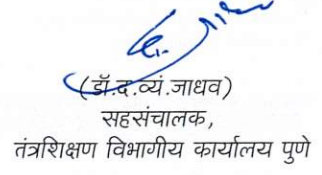 (डॉ.द.व्यं.जाधव)
सहसंचालक,
तंत्रशिक्षण विभागीय कार्यालय पुणे